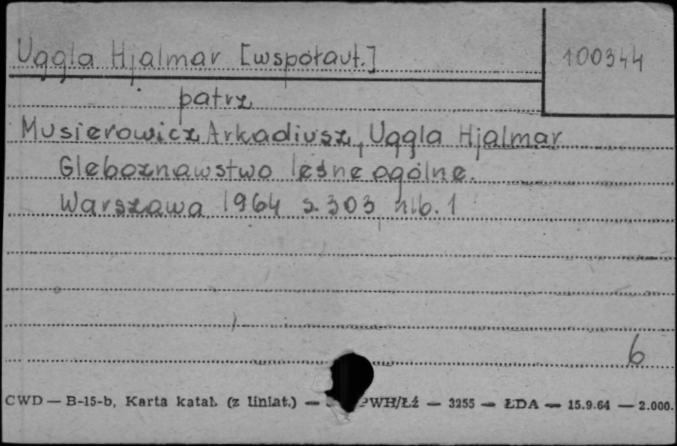 Uggla Hjalmar [współaut.] 100344
patrz
Musierowicz Arkadiusz, Uggla Hjalmar
Gleboznawstwo leśne ogólne.
Warszawa 1964 s. 303, nlb. 1
6
CWD — B-15-b, Karta katal. (z liniat.) — PWH/Łź — 3255 — ŁDA — 15.9.64 — 2.000.